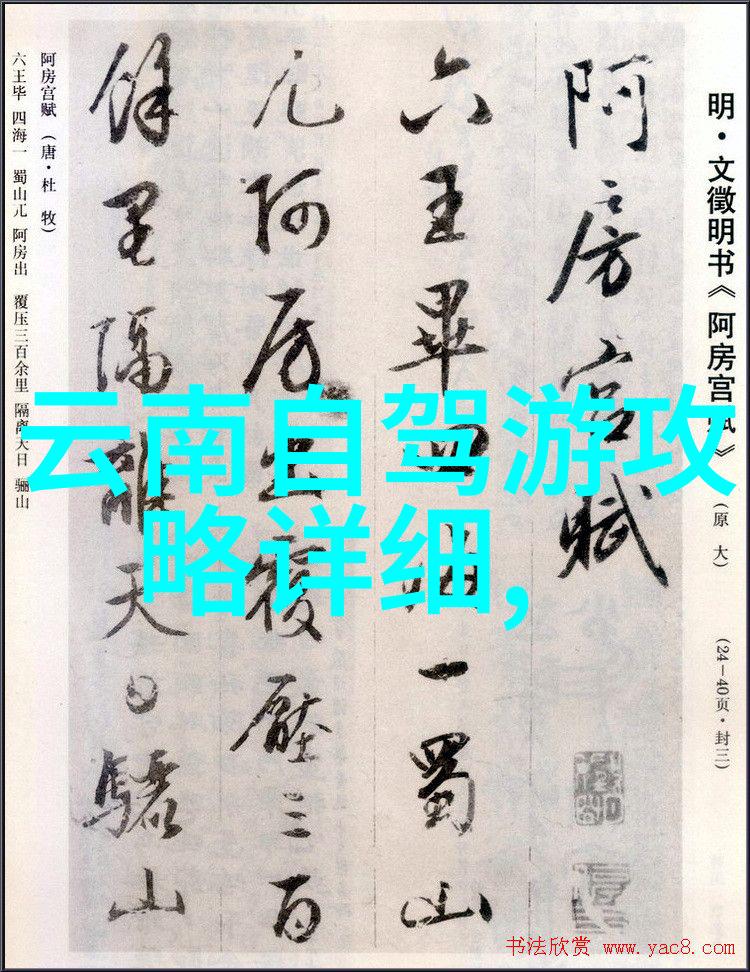 明·文徵明书《阿房宫赋》
(原大)
(24—40页·封三)
阿房宫赋
六王毕四海一蜀山
兀阿房出覆压三百
余里隔离天日骊山
阿房宫赋(唐·杜牧)
六王毕 四海一 蜀山兀 阿房出 覆压三百余里 隔离天日 骊山
云南自驾游攻
略详细,
书法欣赏 www.yac8.com